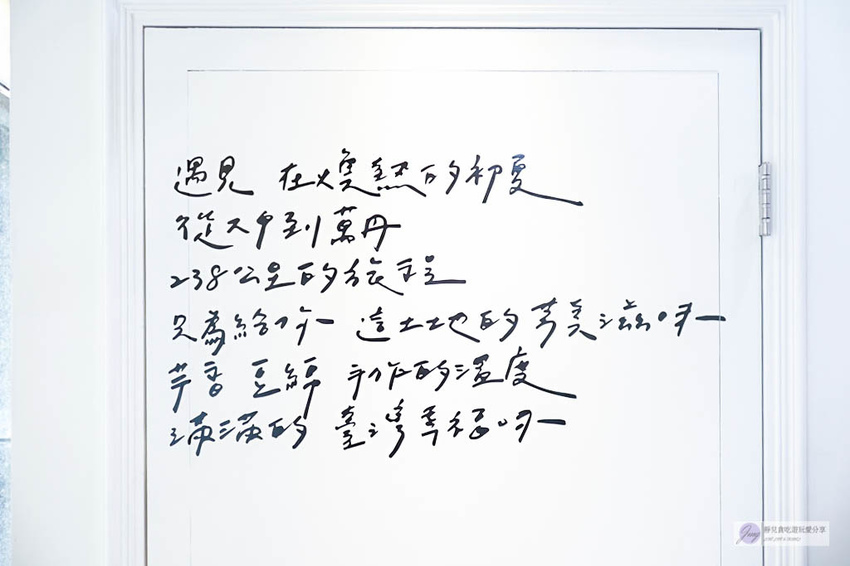 遇見 在燠熱的初夏
從大甲到萬丹
238公里的旅程
只為給你 這土地的芳美滋味
芋香 豆綿 手作的溫度
滿滿的 臺灣幸福味
靜兒貪吃遊玩愛分享